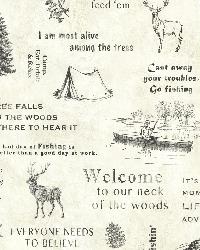 feed 'em
I am most alive
among the trees
Camp
Eat
Cast away
your troubles
Go fishing
FALLS
THE WOODS
HERE TO HEAR IT
bad day of Fishing is
better than a good day at work.
Welcome
to our neck
of the woods
IT'S
MOM
LIF
ADV
EVERYONE NEEDS
TO BELIEVE